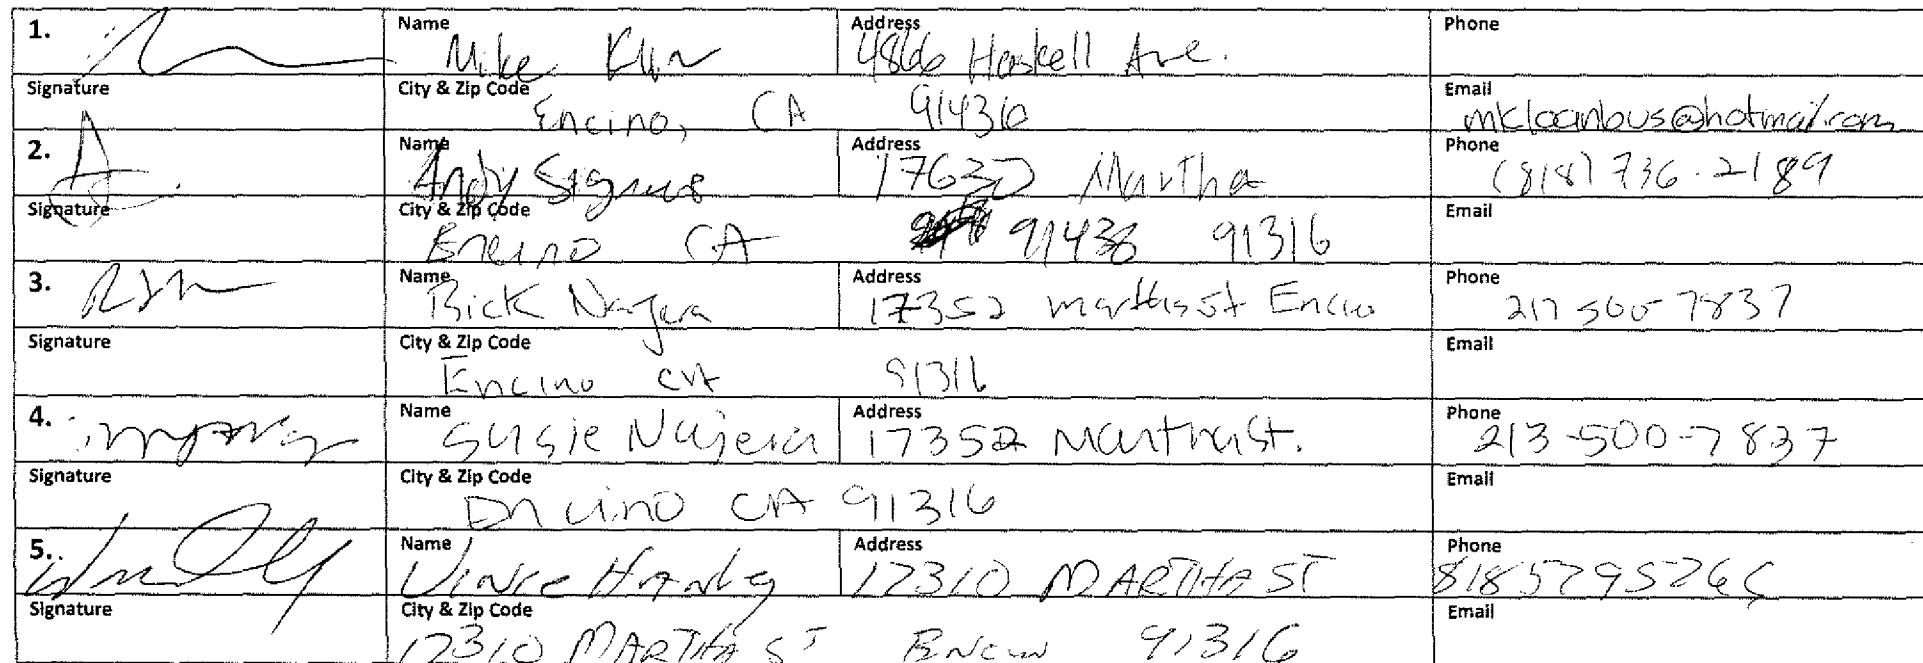 1. Name Mike Address 4866 Haskell Ave. Phone
Signature City & Zip Code Encino, CA 91436 Email mkloanbus@hotmail.com
2. Name Andy Address Martha Phone (818) 736-2189
Signature City & Zip Code Encino CA 91436 91316 Email
3. Name Rick Najera Address 17352 martha st Encino Phone 500-7837
Signature City & Zip Code Encino CA 91316 Email
4. Name Susie Najera Address 17352 Martha st. Phone 213-500-7837
Signature City & Zip Code Encino CA 91316 Email
5. Name Vince Address 17310 MARTHA ST Phone
Signature City & Zip Code 17310 MARTHA ST Encino 91316 Email